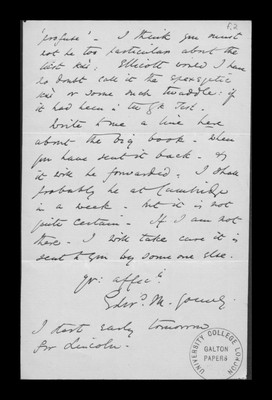 5,2
'profuse' - I think you must
not be too particular about the
first καί; Ellicott would I have
no doubt call it the epexegetic
καί or some such twaddle: if
it had been in the Gk Test.
Write to me a line here
about the big book - when
you have sent it back - &
it will be forwarded. I shall
probably be at Cambridge
in a week - but it is not
quite certain - If I am not
there - I will take care it is
sent to you by some one else.
yrs: affecly
Edwd. M.
I start early tomorrow
for Lincoln -
UNIVERSITY COLLEGE LONDON
GALTON
PAPERS